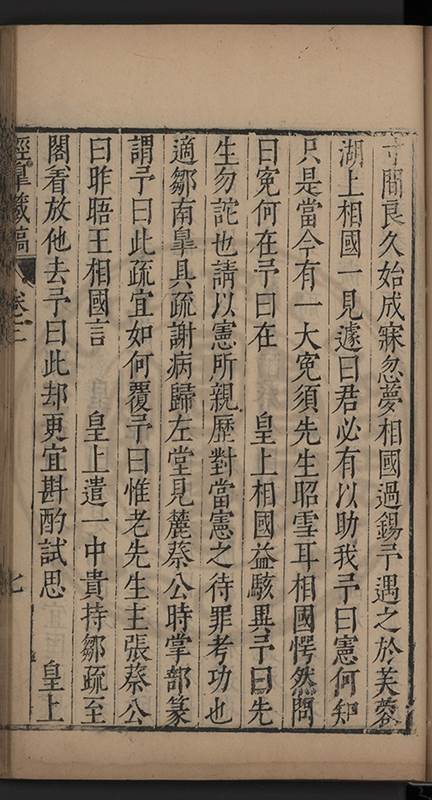 寸間良久始成寐忽夢相國過錫予遇之於芙蓉
湖上相國一見遽曰君必有以助我予曰憲何知
只是當今有一大寃須先生昭雪耳相國愕然問
曰寃何在予曰在　皇上相國益駭異予曰先
生勿詫也請以憲所親歷對當憲之待罪考功也
適鄒南臯具疏謝病歸左堂見麓蔡公時掌部篆
謂予曰此疏宜如何覆予曰惟老先生主張蔡公
曰昨晤王相國言　皇上遣一中貴持鄒疏至
閣看放他去予曰此却更宜斟酌試思　皇上
涇臯藏稿　卷十二　七